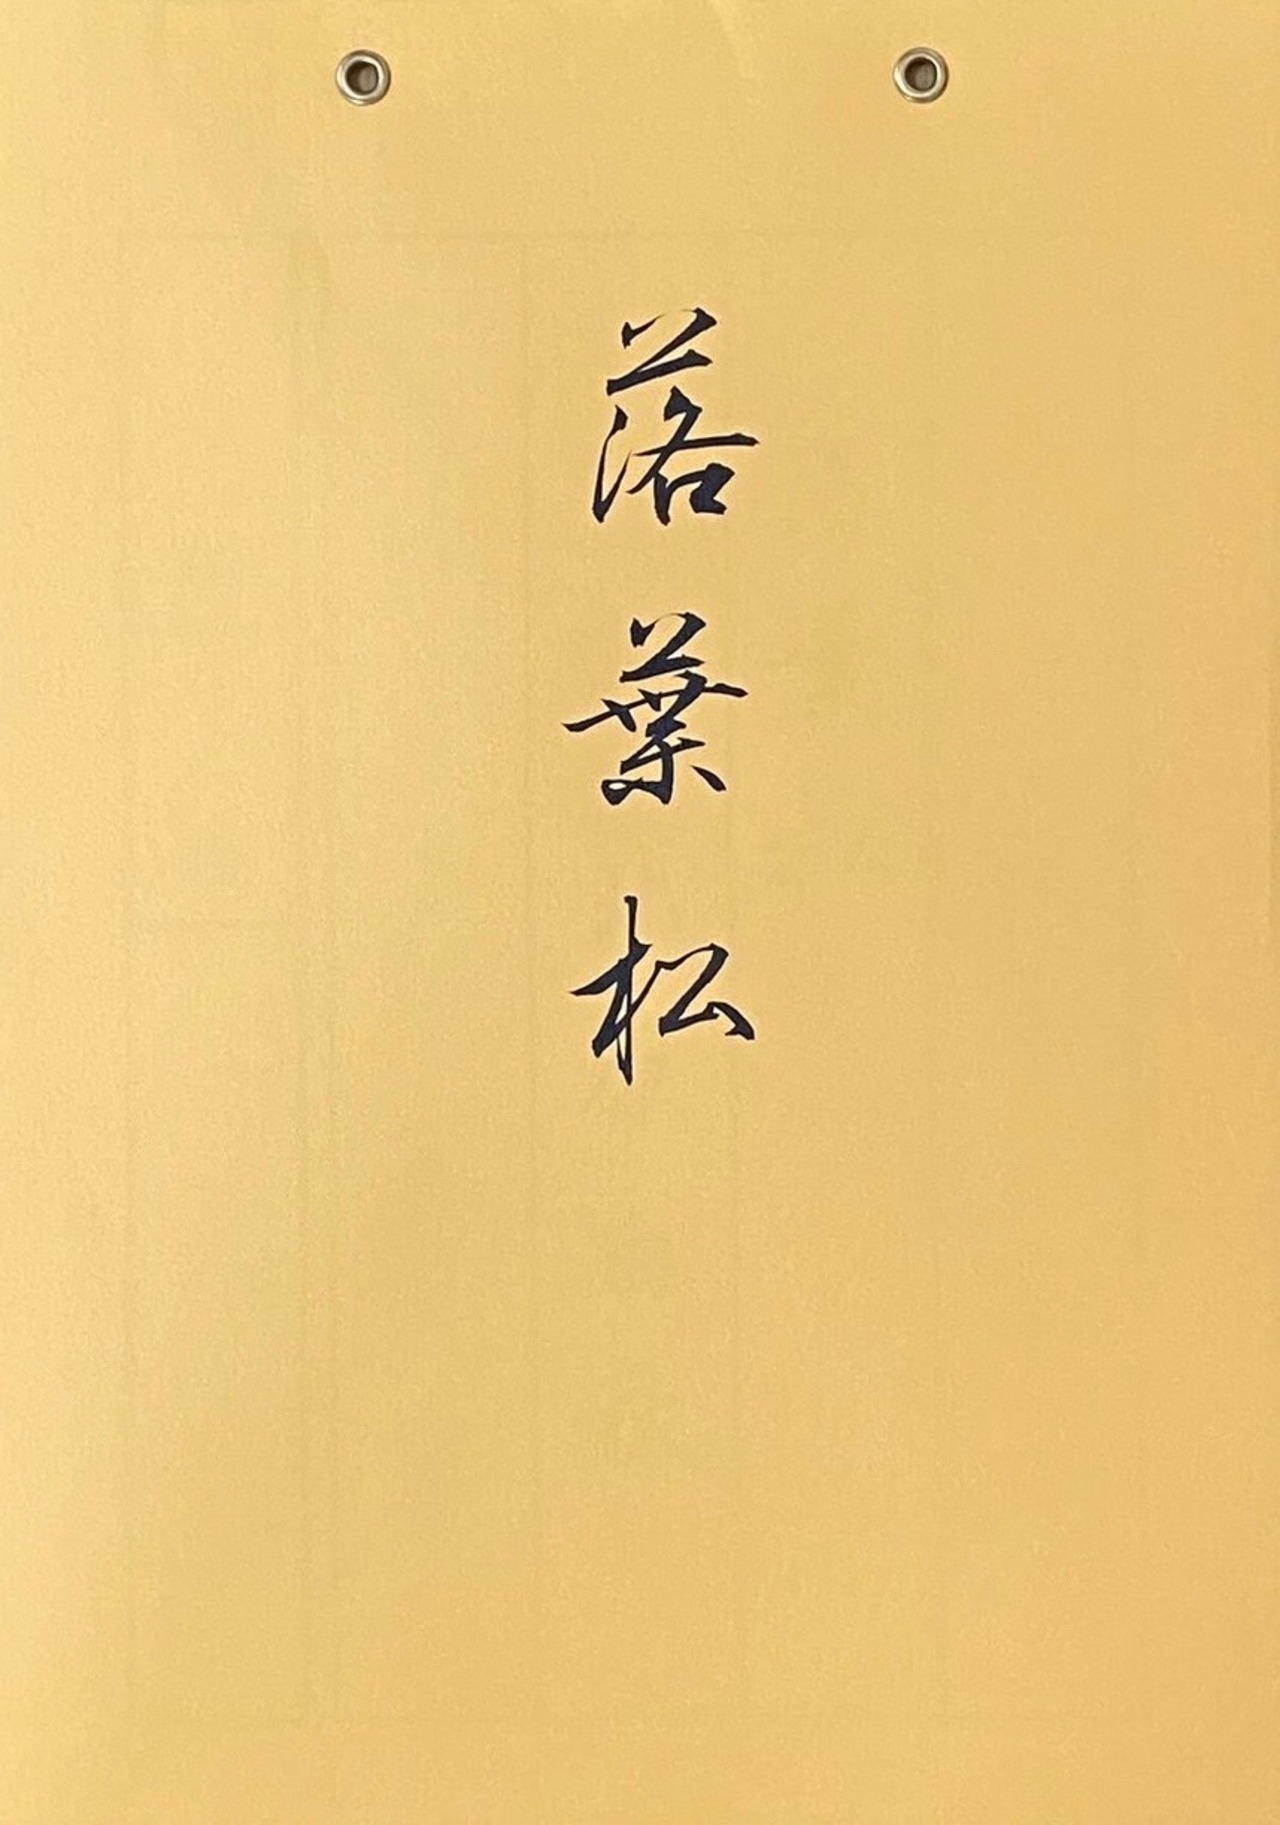 落葉松